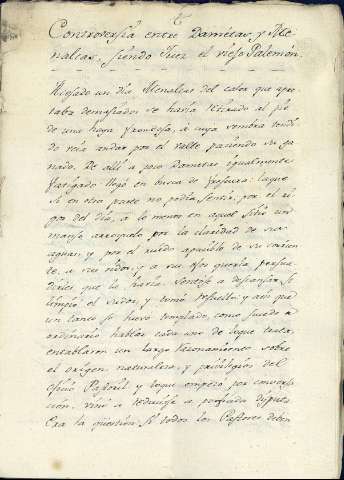 Controversia entre Dametas, y Me-
nalcas, siendo Juez el viejo Palemón.
un dia Menalcas del calor que apre-
taba demasiado se havía retirado al pie
de una haya frondosa, a cuya sombra tendi-
do veía andar por el valle paciendo su ga-
nado. De allí a poco Dametas igualmente
fatigado llegó en busca de frescura: la que
si en otra parte no podía sentir, por el ri-
gor del día, a lo menos en aquel sitio un
manso arroyuelo por la claridad de sus
aguas, y por el ruido apacible de su corrien-
te, a sus oidos, y a sus ojos quería persua-
dirles que la havía. Sentose a descansar, se
limpió el sudor, y tomó resuello: y asi que
un tanto se huvo templado, como suele de
ordinario hablar cada uno de lo que trata,
entablaron un largo razonamiento sobre
el origen, naturaleza, y privilegios del
oficio Pastoril y lo que empezó por conversa-
ción, vino a reducirse a porfiada disputa.
Era la question: Si todos los Pastores deben